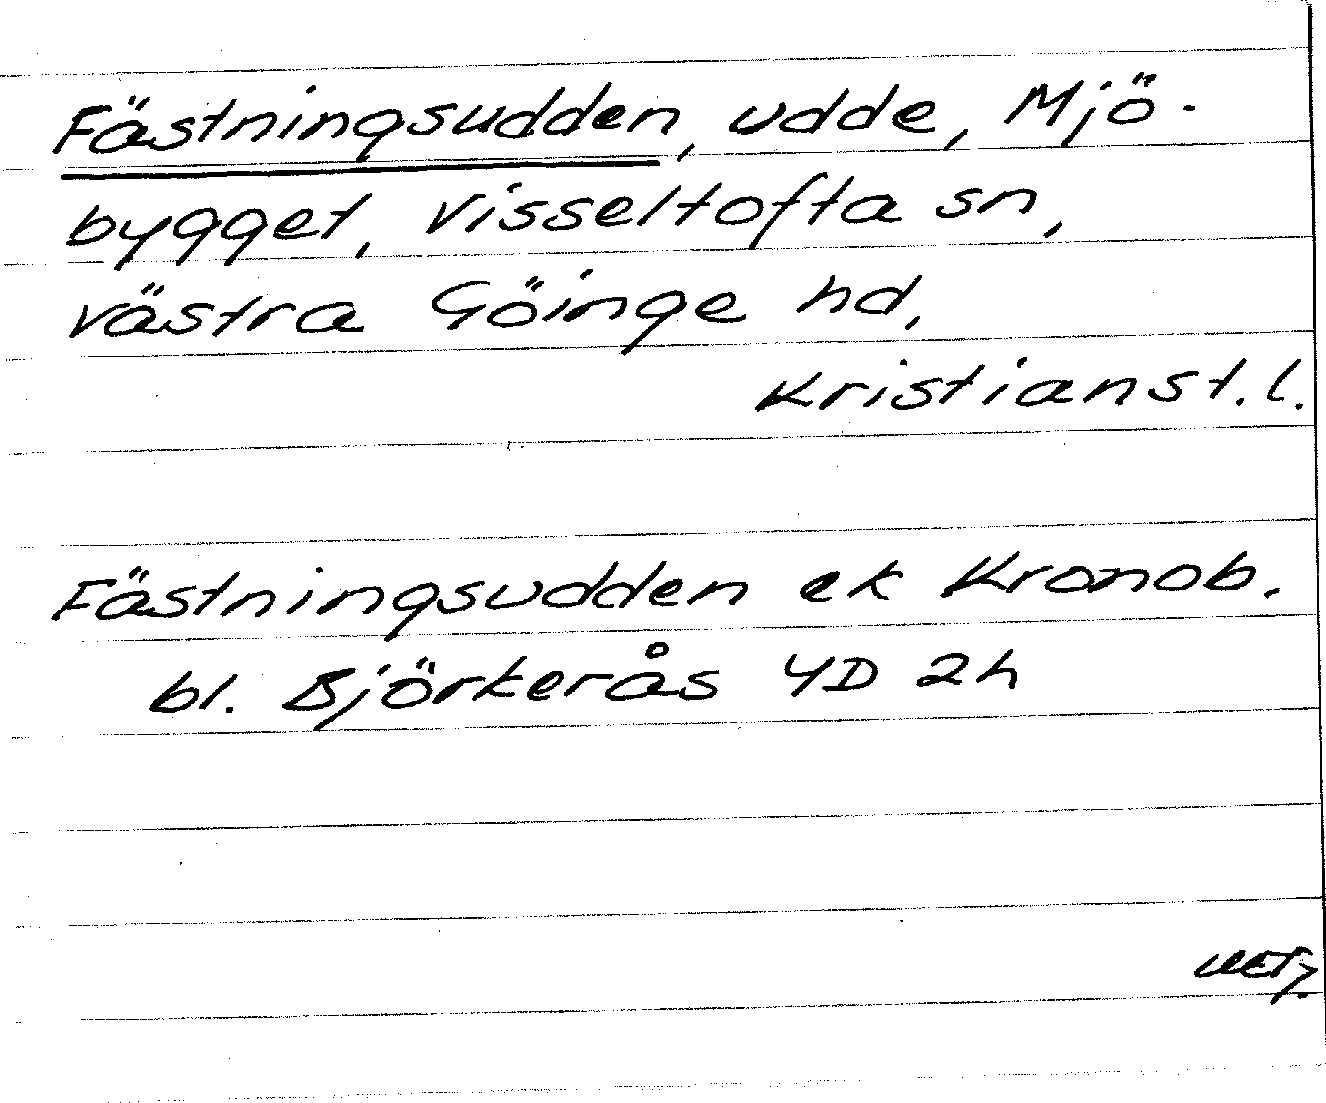 Fästningsudden, udde, Mjö-
bygget, Visseltofta sn,
västra Göinge hd,
Kristianst. l.
Fästningsudden ek Kronob.
bl. Björkerås 4D 2h